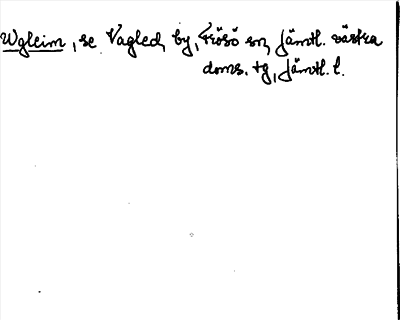 Wgleim, se Vagled, by, Frösö sn, Jämtl. västra
doms. tg, Jämtl. l.